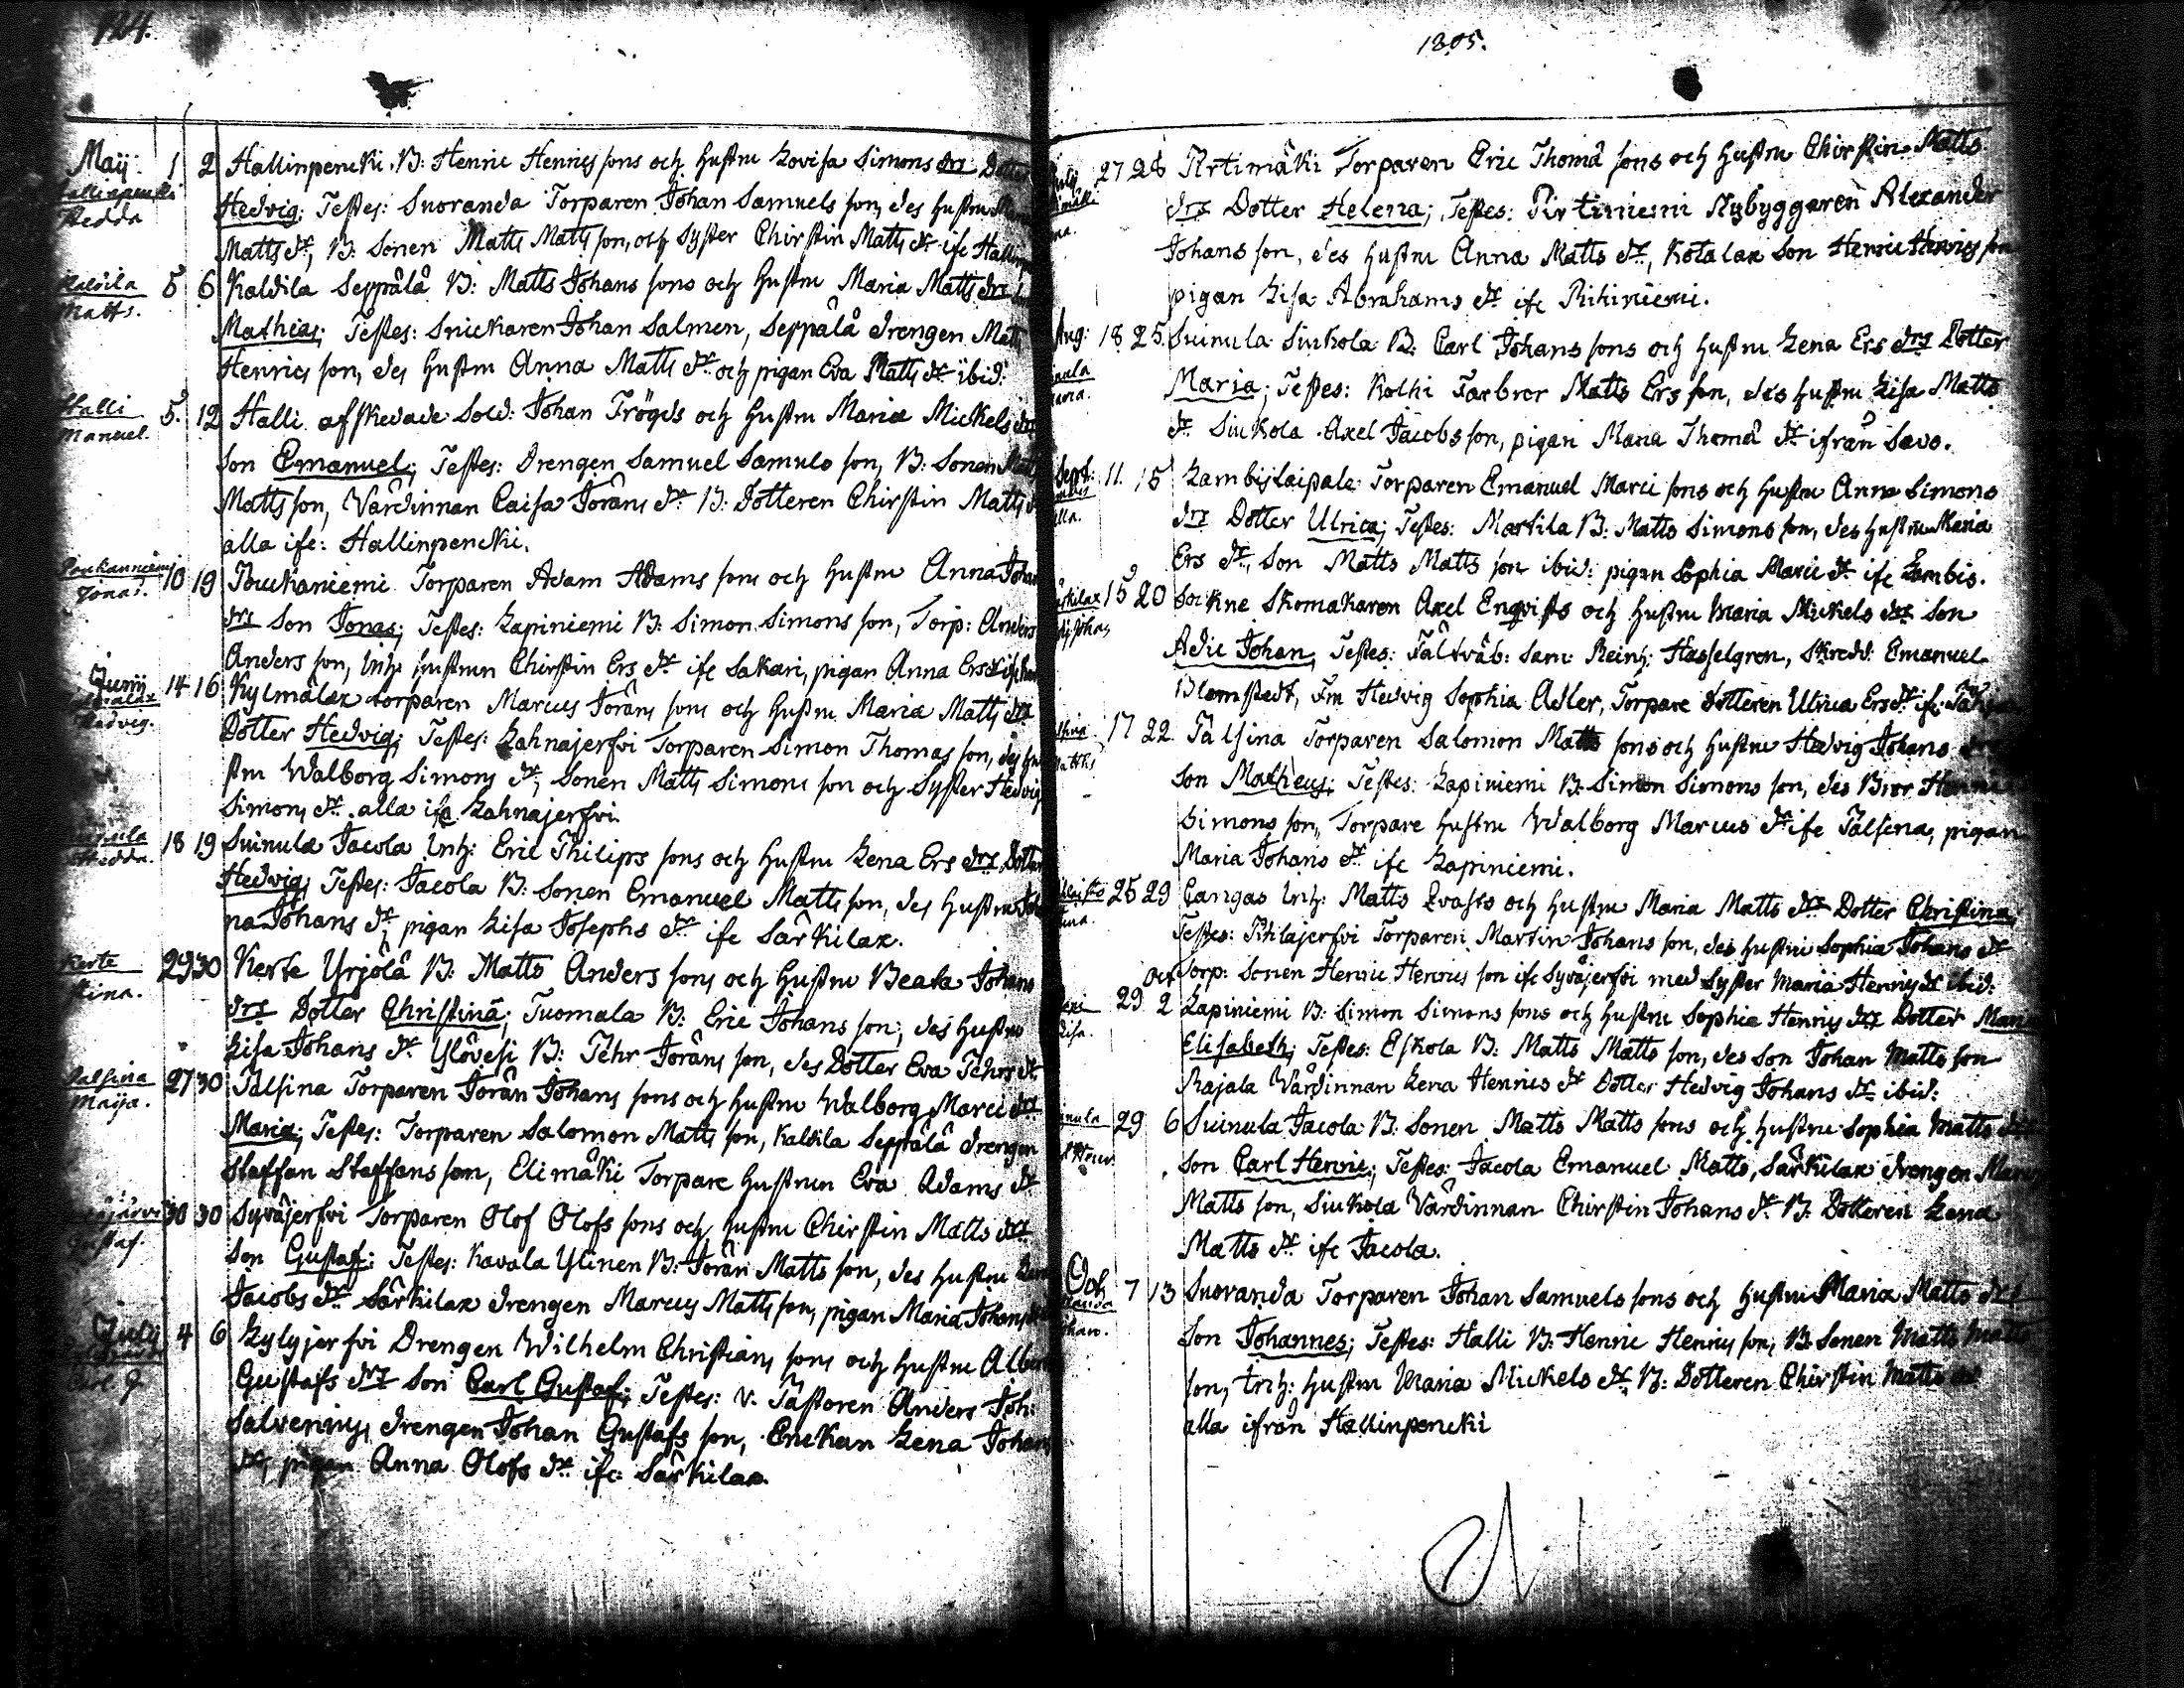 124.
Maij 1 2 Hallinpencki B: Henric Henrics sons och hustru Lovisa Simons drs Dotter
Hallinpencki
Hedda
Hedvig; Testes: Suoranda Torparen Johan Samuels son, des hustru
Matts dr, B: Sonen Matts Matts son, och Syster Chirstin Matts dr ifr
Kaldila 5 6 Kaldila Seppälä B: Matts Johans sons och hustru Maria Matts drs
Matts.
Mathias; Testes: Snickaren Johan Salmen, Seppälä drengen Matts
Henrics son, des hustru Anna Matts dr och pigan Eva Matts dr ibid:
Halli 5. 12 Halli afskedade Sold: Johan Frögds och hustru Maria Mickels drs
Manuel.
Son Emanuel; Testes: drengen Samuel Samuls son, B: Sonen Matts
Matts son, Värdinnan Caisa Jörans dr B: Dotteren Chirstin Matts
alla ifr: Hallinpencki.
Poukanniemi 10 19 Poukaniemi Torparen Adam Adams sons och hustru Anna Johans
Jonas.
drs Son Jonas; Testes: Lapiniemi B: Simon Simons son, Torp: Anders
Anders son, Inh: hustrun Chirstin Ers dr ifr Sakari, pigan Anna Ers dr
Junij 14 16 Kylmälax torparen Marcus Jörans sons och hustru Maria Matts drs
Hedvig.
Dotter Hedvig; Testes: Lahnajerfvi Torparen Simon Thomas son, des hu
stru Walborg Simons dr, Sonen Matts Simons son och Syster Hedvig
Simons dr alla ifr Lahnajerfvi.
18 19 Suinula Jacola Inh: Eric Philips sons och hustru Lena Ers drs Dotter
Hedda.
Hedvig; Testes: Jacola B: Sonen Emanuel Matts son, des hustru
na Johans dr pigan Lisa Josephs dr ifr Särkilax.
Kerte 29 30 Kerte Yrjölä B: Matts Anders sons och hustru Beata Johans
Stina.
drs Dotter Christina; Tuomala B: Eric Johans son, des hustru
Lisa Johans dr Ylövesi B: Pehr Jörans son, des Dotter Eva Pehrs dr.
Palsina 27 30 Palsina Torparen Jöran Johans sons och hustru Walborg Marci drs
Maija.
Maria; Testes: Torparen Salomon Matts son, Kaldila Seppälä drengen
Staffan Staffans son, Elimäki Torpare hustrun Eva Adams dr
30 30 Syväjerfvi Torparen Olof Olofs sons och hustru Chirstin Matts drs
Gustaf.
Son Gustaf; Testes: Kavala Ylinen B: Jöran Matts son, des hustru
Jacobs dr Särkilax drengen Marcus Matts son, pigan Maria Johans
July 4 6 Kylyjerfvi Drengen Wilhelm Christians sons och hustru
Carl G
Gustafs drs Son Carl Gustaf; Testes: V. Pastoren Anders Joh:
Salvenius, drengen Johan Gustafs son, Enckan Lena Johans
dr, pigan Anna Olofs dr ifr: Särkilax.
1805.
July 27 28 Pirtimäki Torparen Eric Thomä sons och hustru Chirstin Matts
drs Dotter Helena; Testes: Pirtiniemi Nybyggaren Alexander
Johans son, des hustru Anna Matts dr, Kotalax Son Henric Henrics son
pigan Lisa Abrahams dr ifr Rihiniemi.
Aug: 18 25 Suinula Siukola B: Carl Johans sons och hustru Lena Ers drs Dotter
Maria; Testes: Kolhi Farbror Matts Ers son, des hustru Lisa Matts
dr Siukola Axel Jacobs son, pigan Maria Thomä dr ifrån Savo.
Sept: 11. 15 Lambis Laipale Torparen Emanuel Marci sons och hustru Anna Simons
drs Dotter Ulrica; Testes: Martila B: Matts Simons son, des hustru Maria
Ers dr, Son Matts Matts son ibid: pigan Sophia Marci dr ifr Lambis.
15 20 Sockne Skomakaren Axel Enqvists och hustru Maria Mickels drs Son
Adic Johan, Testes: Fältväb: Sam: Reinh: Hasselgren, Skredd: Emanuel
Blomstedt, Fru Hedvig Sophia Adler, Torpare dotteren Ulrica Ers dr ifr
17 22 Palsina Torparen Salomon Matts sons och hustru Hedvig Johans drs
Son Matheus; Testes: Lapiniemi B: Simon Simons son, des Bror Henric
Simons son, Torpare hustru Walborg Marcus dr ifr Palsina, pigan
Maria Johans dr ifr Lapiniemi.
25 29 Cangas Inh: Matts Qvasts och hustru Maria Matts drs Dotter Christina;
Testes: Pihlajerfvi Torparen Martin Johans son, des hustru Sophia Johans dr
Torp: Sonen Henric Henrics son ifr Syväjerfvi med Syster Maria Henrics dr ibid:
Oct
29 2 Lapiniemi B: Simon Simons sons och hustru Sophia Henrics drs Dotter
Elisabeth; Testes: Eskola B: Matts Matts son, des Son Johan Matts son
Rajala Värdinnan Lena Henrics dr Dotter Hedvig Johans dr ibid:
29 6 Suinula Jacola B: Sonen Matts Matts sons och hustru Sophia Matts
Son Carl Henric; Testes: Jacola Emanuel Matts, Särkilax drengen
Matts son, Siukola Värdinnan Chirstin Johans dr B: Dotteren Lena
Matts dr ifr Jacola.
Oct 7 13 Suoranda Torparen Johan Samuels sons och hustru Maria Matts drs
Son Johannes; Testes: Halli B: Henric Henrics son, B: Sonen Matts Matts
son, Inh: hustru Maria Mickels dr, B: Dotteren Chirstin Matts dr
alla ifrån Hallinpencki